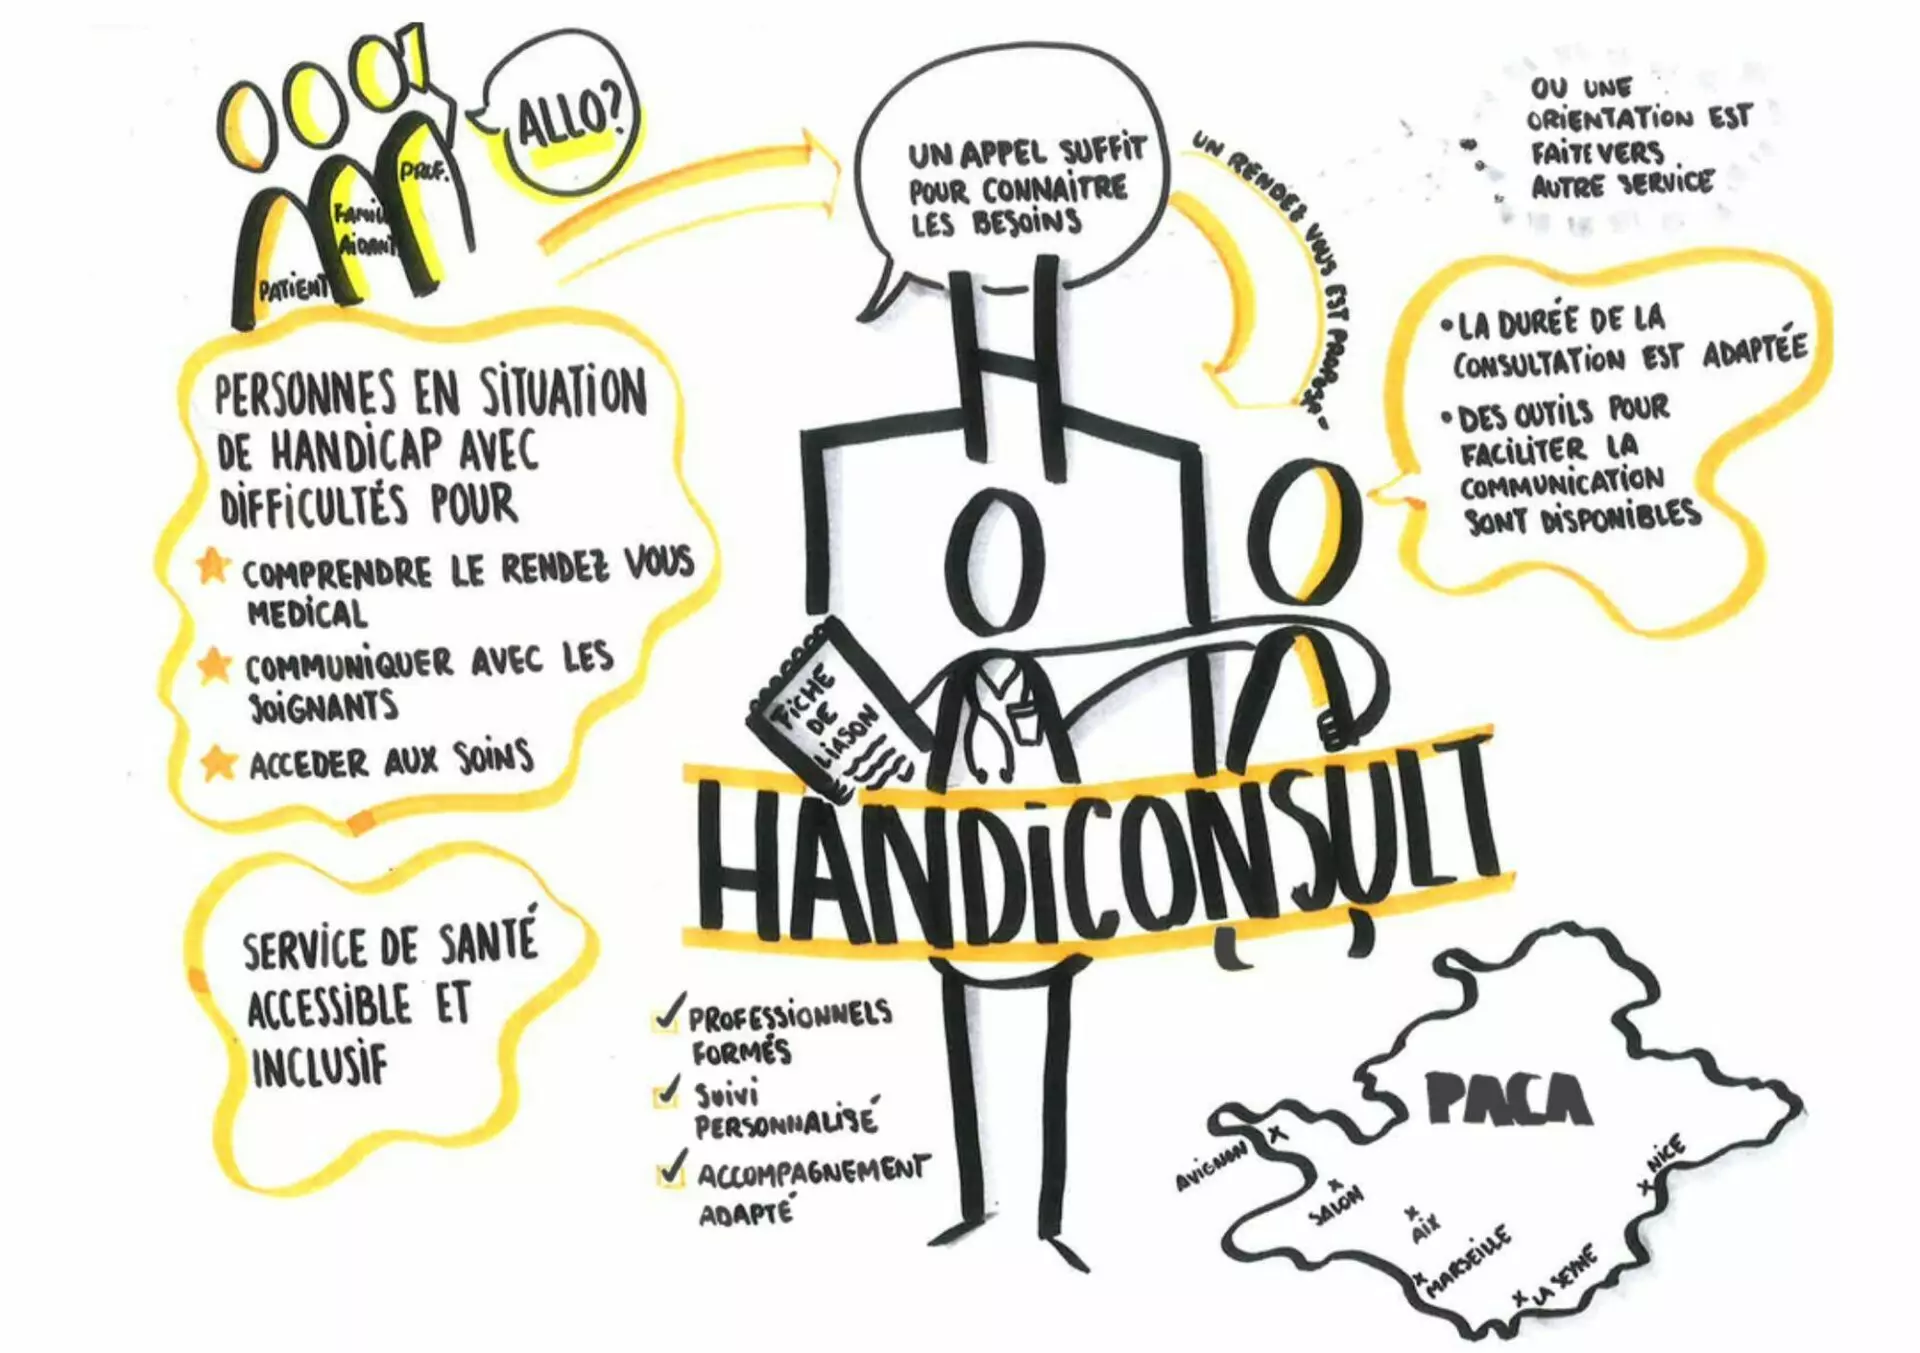 ALLO?
PATIENT
FAMILL
AIDANT
PROF.
UN APPEL SUFFIT
POUR CONNAITRE
LES BESOINS
UN RENDEZ VOUS EST PROPOSÉ
OU UNE
ORIENTATION EST
FAITE VERS
AUTRE SERVICE
• LA DURÉE DE LA
CONSULTATION EST ADAPTÉE
• DES OUTILS POUR
FACILITER LA
COMMUNICATION
SONT DISPONIBLES
PERSONNES EN SITUATION
DE HANDICAP AVEC
DIFFICULTÉS POUR
COMPRENDRE LE RENDEZ VOUS
MEDICAL
COMMUNIQUER AVEC LES
SOIGNANTS
ACCEDER AUX SOINS
FICHE
DE
LIASON
HANDICONSULT
SERVICE DE SANTÉ
ACCESSIBLE ET
INCLUSIF
PROFESSIONNELS
FORMÉS
SUIVI
PERSONNALISÉ
ACCOMPAGNEMENT
ADAPTÉ
PACA
AVIGNON
SALON
AIX
MARSEILLE
LA SEYNE
NICE